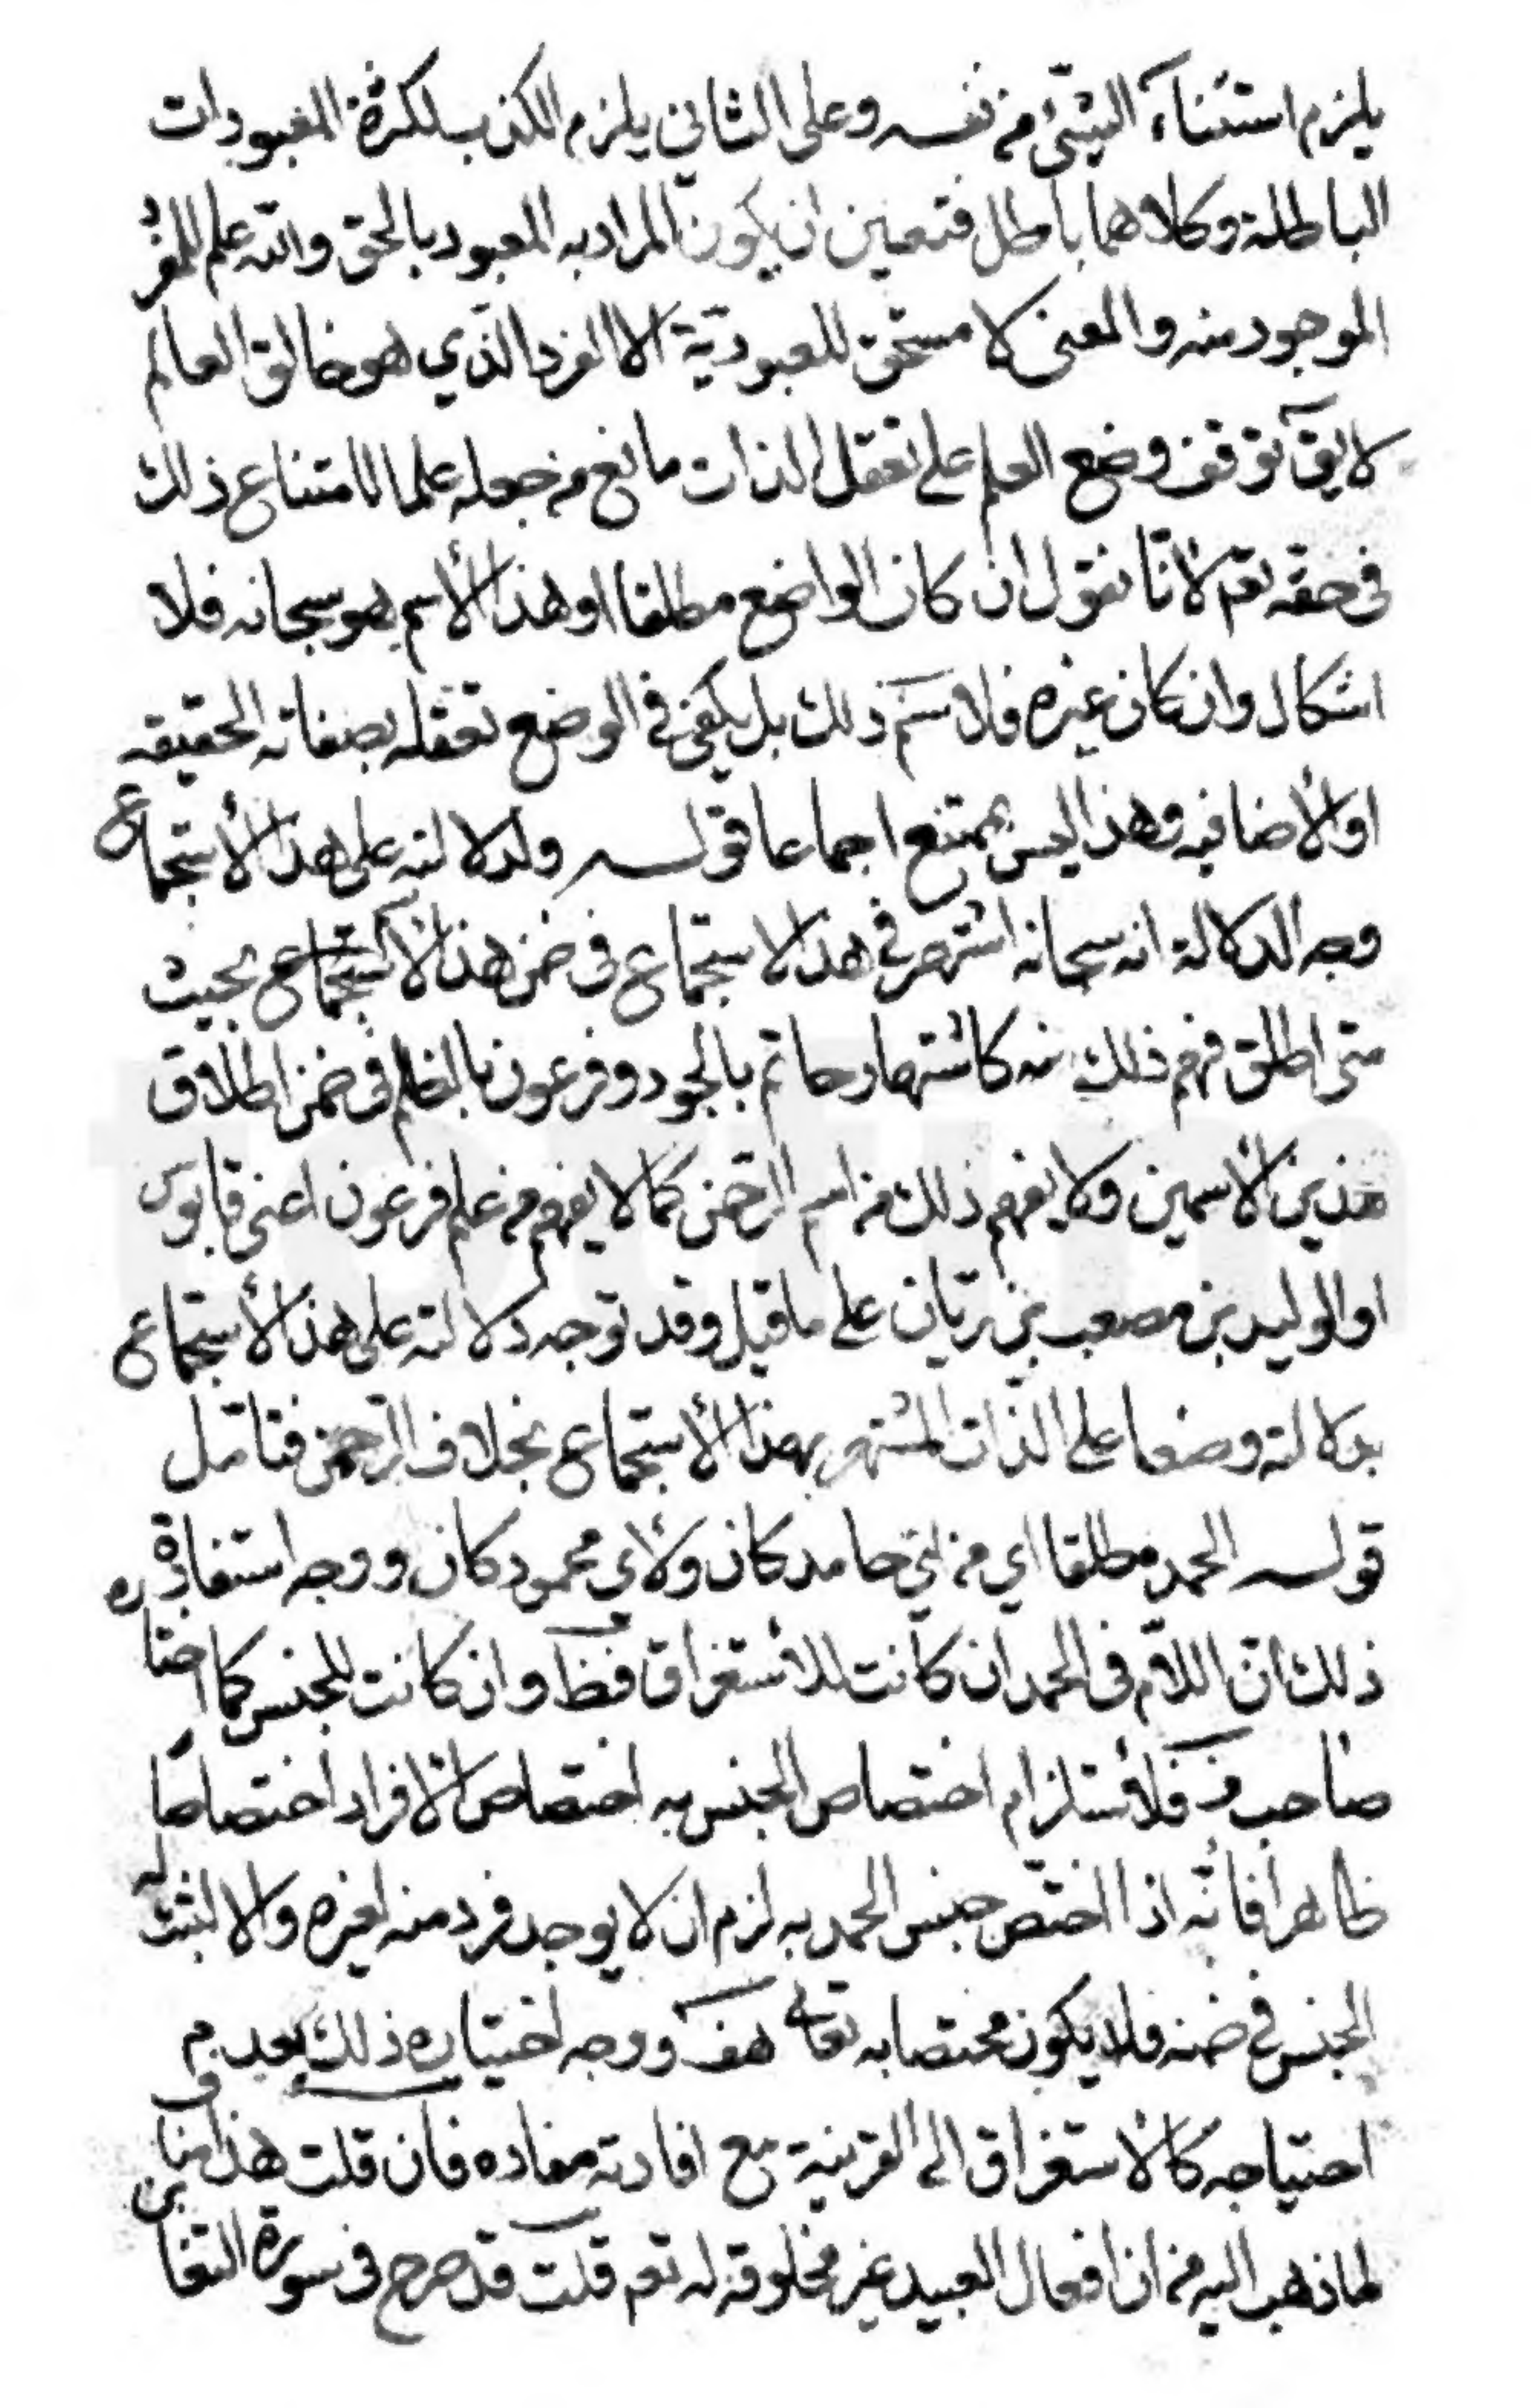 يلزم استثناء الشيئ من نفسه وعلى الثاني يلزم الكذب لكثرة المعبودات
الباطلة وكلاهما باطل فتعين ان يكون المراد به المعبود بالحق والله علم للفرد
الموجود منه والمعنى لا مستحق للعبودية الا الفرد الذي هو خالق العالم
لا يق توقف وضع العلم على تعقل الذات مانع من جعله علما لامتناع ذلك
في حقه تع لانا نقول ان كان الواضع مطلقا او هذا الأسم هو سبحانه فلا
اشكال وان كان غيره فلا نسم ذلك بل يكفي في الوضع تعقله بصفاته الحقيقه
او الأضافيه وهذا ليس بممتنع اجماعا قوله ولدلالته على هذا الأستجماع
وجه الدلالة انه سبحانه اشتهر في هذا الاستجماع في ضمن هذا الأستجماع بحيث
متى اطلق فهم ذلك منه كاشتهار حاتم بالجود وفرعون بالظلم في ضمن اطلاق
هذين الأسمين ولا يفهم ذلك من اسم الرحمن كما لا يفهم من علم فرعون اعنى قابوس
او الوليد بن مصعب بن ريان على ما قيل وقد توجه دلالته على هذا الأستجماع
بدلالته وضعا على الذات المشتهر بهذا الأستجماع بخلاف الرحمن فتامل
قوله الحمد مطلقا اي من اي حامد كان ولأي محمود كان ووجه استفادة
ذلك ان اللام في الحمد ان كانت للأستغراق فظ وان كانت للجنس كما اختاره
صاحب ف فلأستلزام اختصاص الجنس به اختصاص الافراد اختصاصا
ظاهرا فانه اذا اختص جنس الحمد به لزم ان لا يوجد فرد منه لغيره والا لثبت له
الجنس في ضمنه فلا يكون مختصا به تعالى هف ووجه اختياره ذلك بعدم
احتياجه كالاستغراق الى القرينة مع افادته مفاده فان قلت هذا ينافي
لما ذهب اليه من ان افعال العبيد غير مخلوقة له تعم قلت قد صرح في سورة التغابن